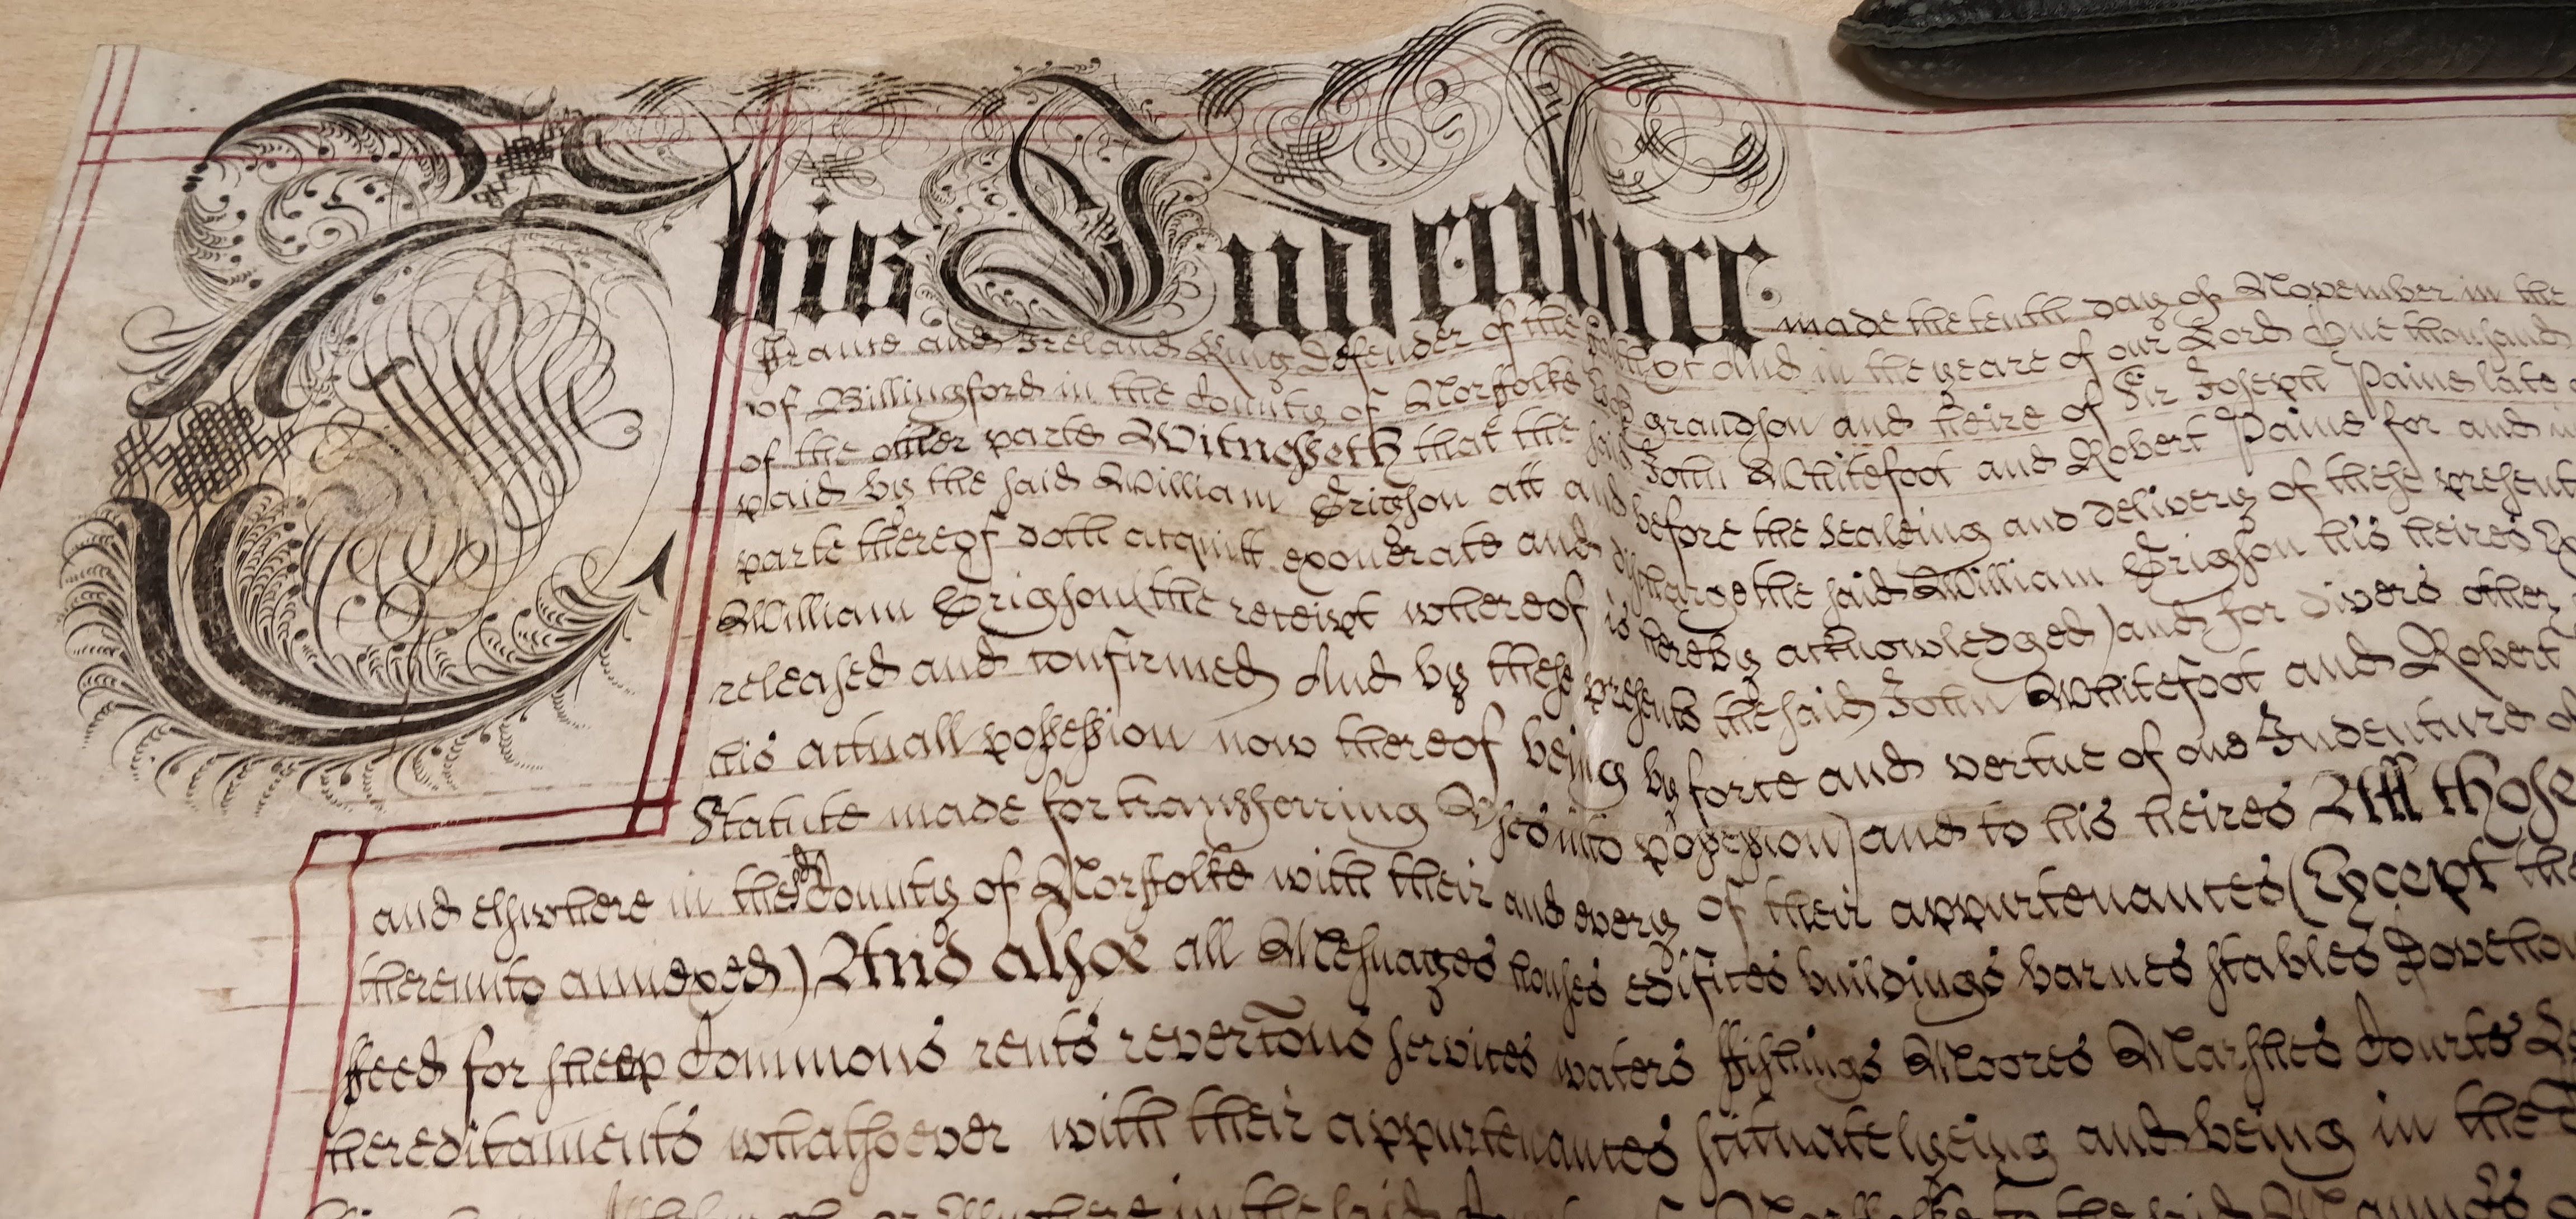 This Indenture made the tenth day of November in the
France and Ireland King Defender of the faith &c And in the yeare of our Lord One thousand
of Billingford in the County of Norffolke grandson and heire of Sir Joseph Paine late
of the other parte Witnesseth that the said John Whitefoot and Robert Paine for and in
paid by the said William Brigson att and before the sealeing and delivery of these present
parte thereof doth acquitt exonerate and discharge the said William Brigson his heires
William Brigson (the receipt whereof is hereby acknowledged) and for divers other
released and confirmed And by these presents the said John Whitefoot and Robert
his actuall possession now thereof being by force and vertue of one Indenture
Statute made for transferring Uses into possession) and to his heires All those
and elswhere in the sd County of Norffolke with their and every of their appurtenances (Except the
thereunto annexed) And alsoe all Messuages houses edifices buildings barnes stables Dovehou
ffeed for sheep Commons rents revercons services waters ffishings Moores Marshes Courts
hereditaments whatsoever with their appurtenances scituate lyeing and being in the
in the said